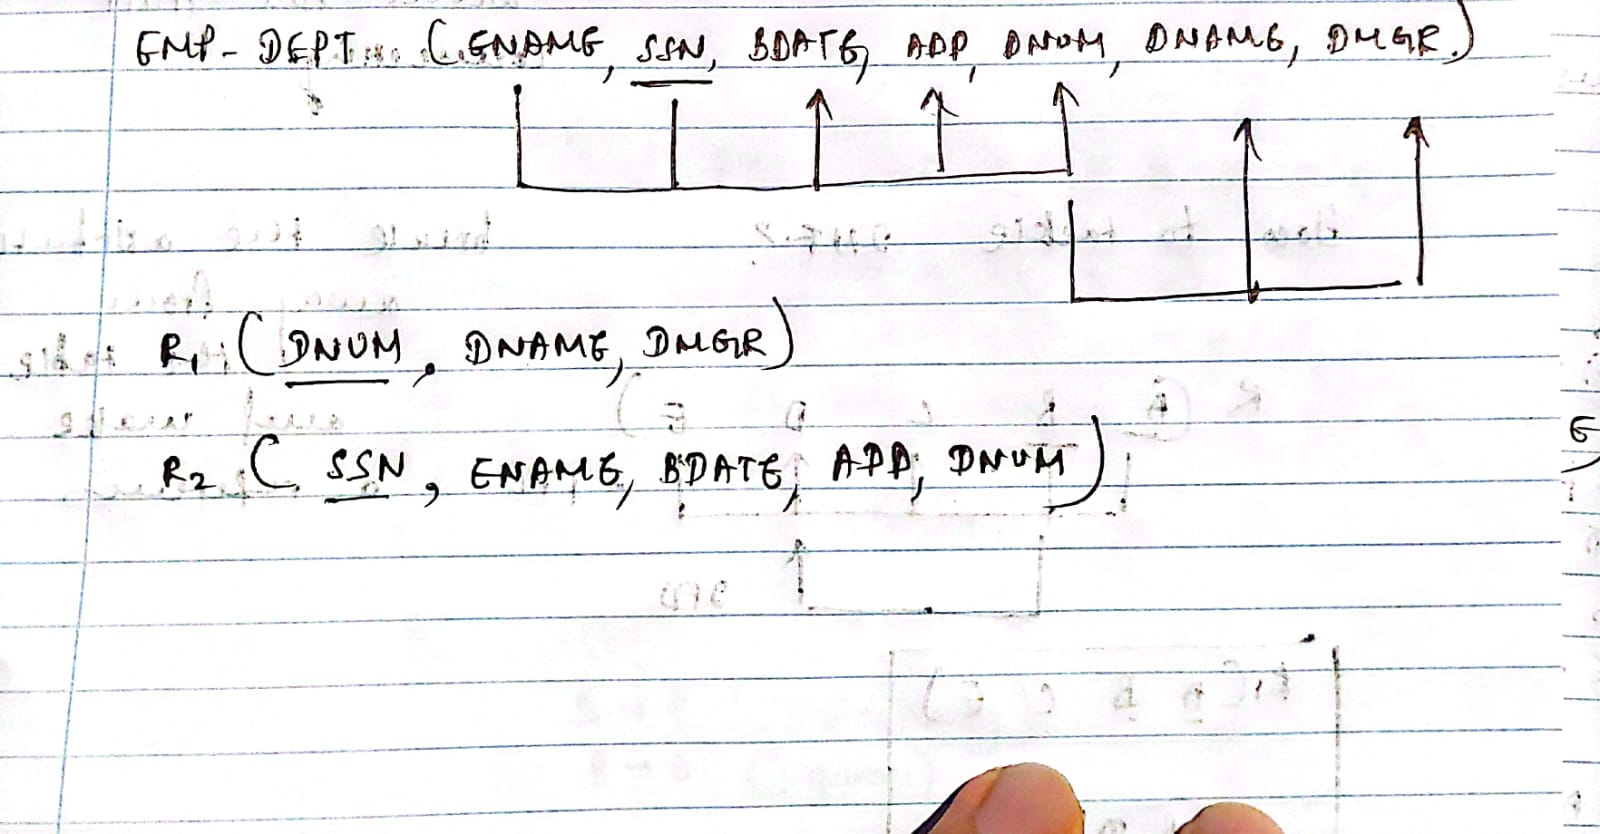 EMP-DEPT (ENAME, SSN, BDATE, ADD, DNUM, DNAME, DMGR)
R1 (DNUM, DNAME, DMGR)
R2 (SSN, ENAME, BDATE, ADD, DNUM)